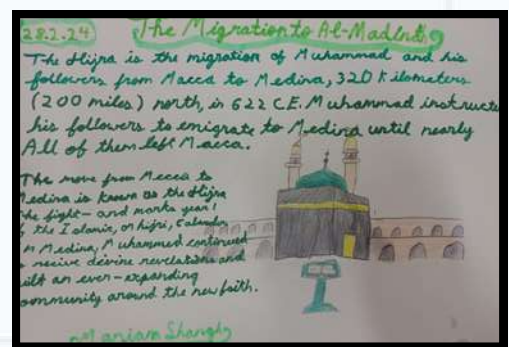 28.2.24
The Migration to Al-Madinah
The Hijra is the migration of Muhammad and his
followers from Macca to Medina, 320 Kilometers
(200 miles) north, in 622 C.E. Muhammad instructe
his followers to emigrate to Medina until nearly
All of them left Macca.
The move from Mecca to
edina is known as the Hijra
he fight- and marks year 1
the Islamic, or hijri, Calender
n Medina, Muhammed continued
recive devine revelations and
uilt an ever-expanding
ommunity around the new faith.
Mariam